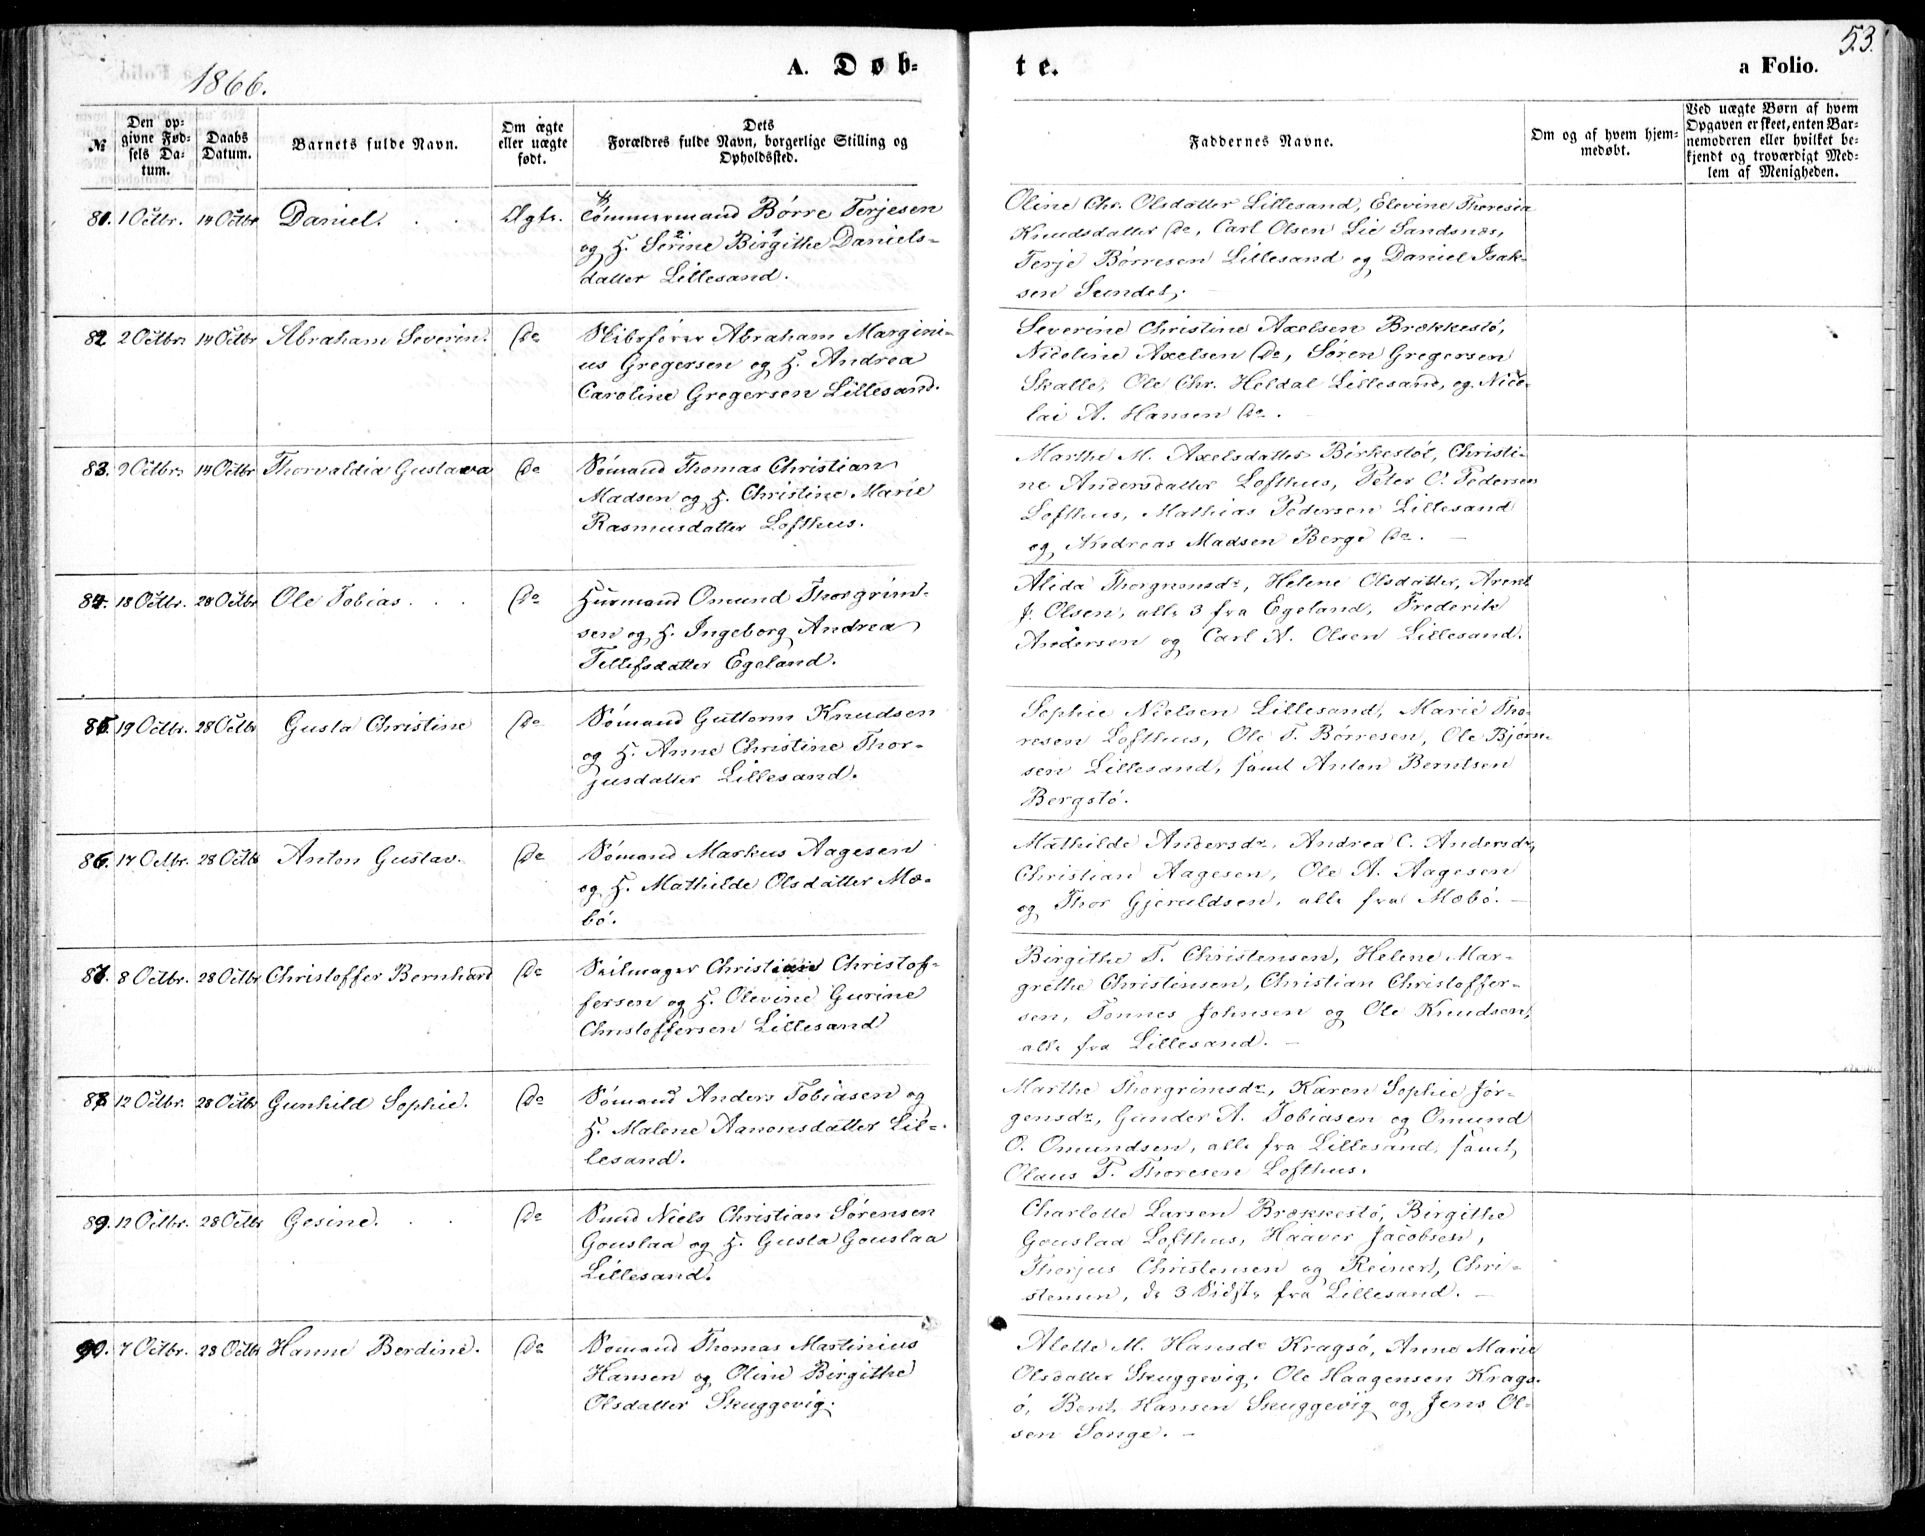 53.
1866.
A. Døb-
te.
a Folio.
№
Den op-
givne Fød-
sels Da-
tum.
Daabs
Datum.
Barnets fulde Navn.
Om ægte
eller uægte
født.
Dets
Forældres fulde Navn, borgerlige Stilling og
Opholdssted.
Faddernes Navne.
Om og af hvem hjem-
medøbt.
Ved uægte Børn af hvem
Opgaven er skeet, enten Bar-
nemoderen eller hvilket be-
kjendt og troværdigt Med-
lem af Menigheden.
81. 1 Octbr. 14 Octbr Daniel. Ægte.
Tømmermand Børre Terjesen
og H. Serine Birgithe Daniels-
datter Lillesand.
Oline Chr. Olsdatter Lillesand, Elevine Theresia
Knudsdatter do, Carl Olsen Lie Sandsnæs,
Terje Børresen Lillesand og Daniel Isak-
sen Sundet.
82. 2 Octbr. 14 Octbr Abraham Severin. do
Skibsfører Abraham Margini-
us Gregersen og H. Andrea
Caroline Gregersen Lillesand.
Severine Christine Axelsen Brækkestø,
Nicoline Axelsen do, Søren Gregersen
Skalle, Ole Chr. Heldal Lillesand, og Nico-
lai A. Hansen do.
83. 9 Octbr. 14 Octbr Thorvaldia Gustava do
Sømand Thomas Christian
Madsen og H. Christine Marie
Rasmusdatter Lofthus.
Marthe M. Axelsdatter Birkestøl, Christi-
ne Andersdatter Lofthus, Peter O. Pedersen
Lofthus, Mathias Pedersen Lillesand
og Andreas Madsen Berge do.
84. 18 Octbr. 28 Octbr Ole Tobias. do
Husmand Omund Thorgrim-
sen og H. Ingeborg Andrea
Tellefsdatter Egeland.
Alida Thorgrimsdr, Helene Olsdatter, Arent
J. Olsen, alle 3 fra Egeland, Frederik
Andersen og Carl A. Olsen Lillesand.
85. 19 Octbr. 28 Octbr Gusta Christine do
Sømand Guttorm Knudsen
og H. Anne Christine Thor-
jusdatter Lillesand.
Sophie Nielsen Lillesand, Marie Tho-
resen Lofthus, Ole T. Børresen, Ole Bjørn-
sen Lillesand, samt Anton Berntsen
Bergstø.
86. 17 Octbr. 28 Octbr Anton Gustav. do
Sømand Markus Aagesen
og H. Mathilde Olsdatter Mø-
bø.
Mathilde Andersdr, Andrea C. Andersdr,
Christian Aagesen, Ole A. Aagesen
og Thor Gjeruldsen, alle fra Møbø.
87. 8 Octbr. 28 Octbr Christoffer Bernhard do
Seilmager Christian Christof-
fersen og H. Olevine Gurine
Christoffersen Lillesand
Birgithe T. Christensen, Helene Mar-
grethe Christensen, Christian Christoffer-
sen, Tønnes Johnsen og Ole Knudsen,
alle fra Lillesand.
88. 12 Octbr. 28 Octbr Gunhild Sophie. do
Sømand Anders Tobiasen og
H. Malene Aanonsdatter Lil-
lesand.
Marthe Thorgrimsdr, Karen Sophie Jør-
gensdr, Gunder A. Tobiasen og Omund
O. Omundsen, alle fra Lillesand, samt
Olaus T. Thoresen Lofthus.
89. 12 Octbr. 28 Octbr Gesine. do
Smed Niels Christian Sørensen
Gouslaa og H. Gusta Gouslaa
Lillesand.
Charlotte Larsen Brækkestø, Birgithe
Gouslaa Lofthus, Haaver Jacobsen,
Thorjus Christensen og Reinert Chri-
stensen, de 3 Sidste fra Lillesand.
90. 7 Octbr. 28 Octbr Hanne Berdine. do
Sømand Thomas Martinius
Hansen og Oline Birgithe
Olsdatter Skuggevig.
Alette M. Hansdr Kragsø, Anne Marie
Olsdatter Skuggevig, Ole Haagensen Krags-
ø, Bent Hansen Skuggevig og Jens Ol-
sen Songe.